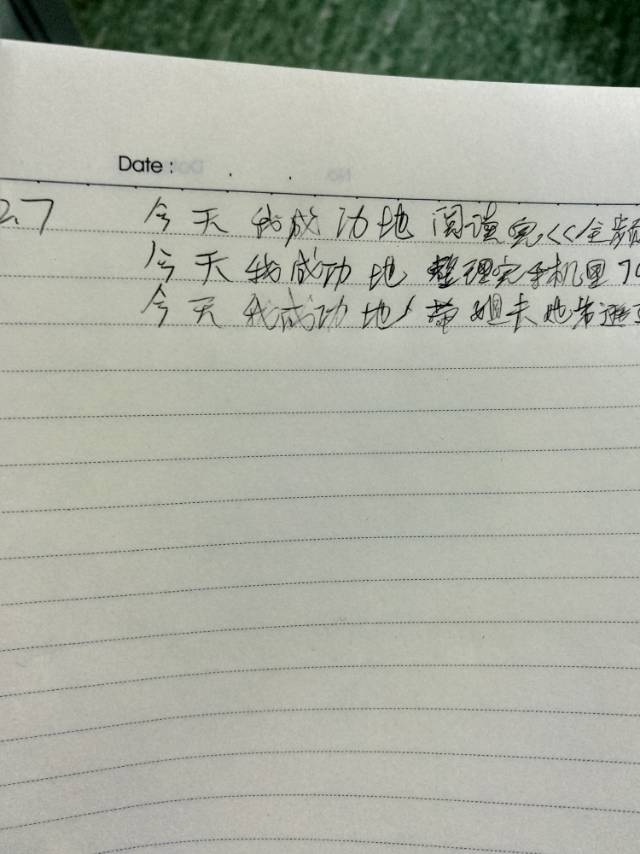 Date :
2.7 今天我成功地阅读完<<全频
今天我成功地整理完手机里70
今天我成功地带姐去